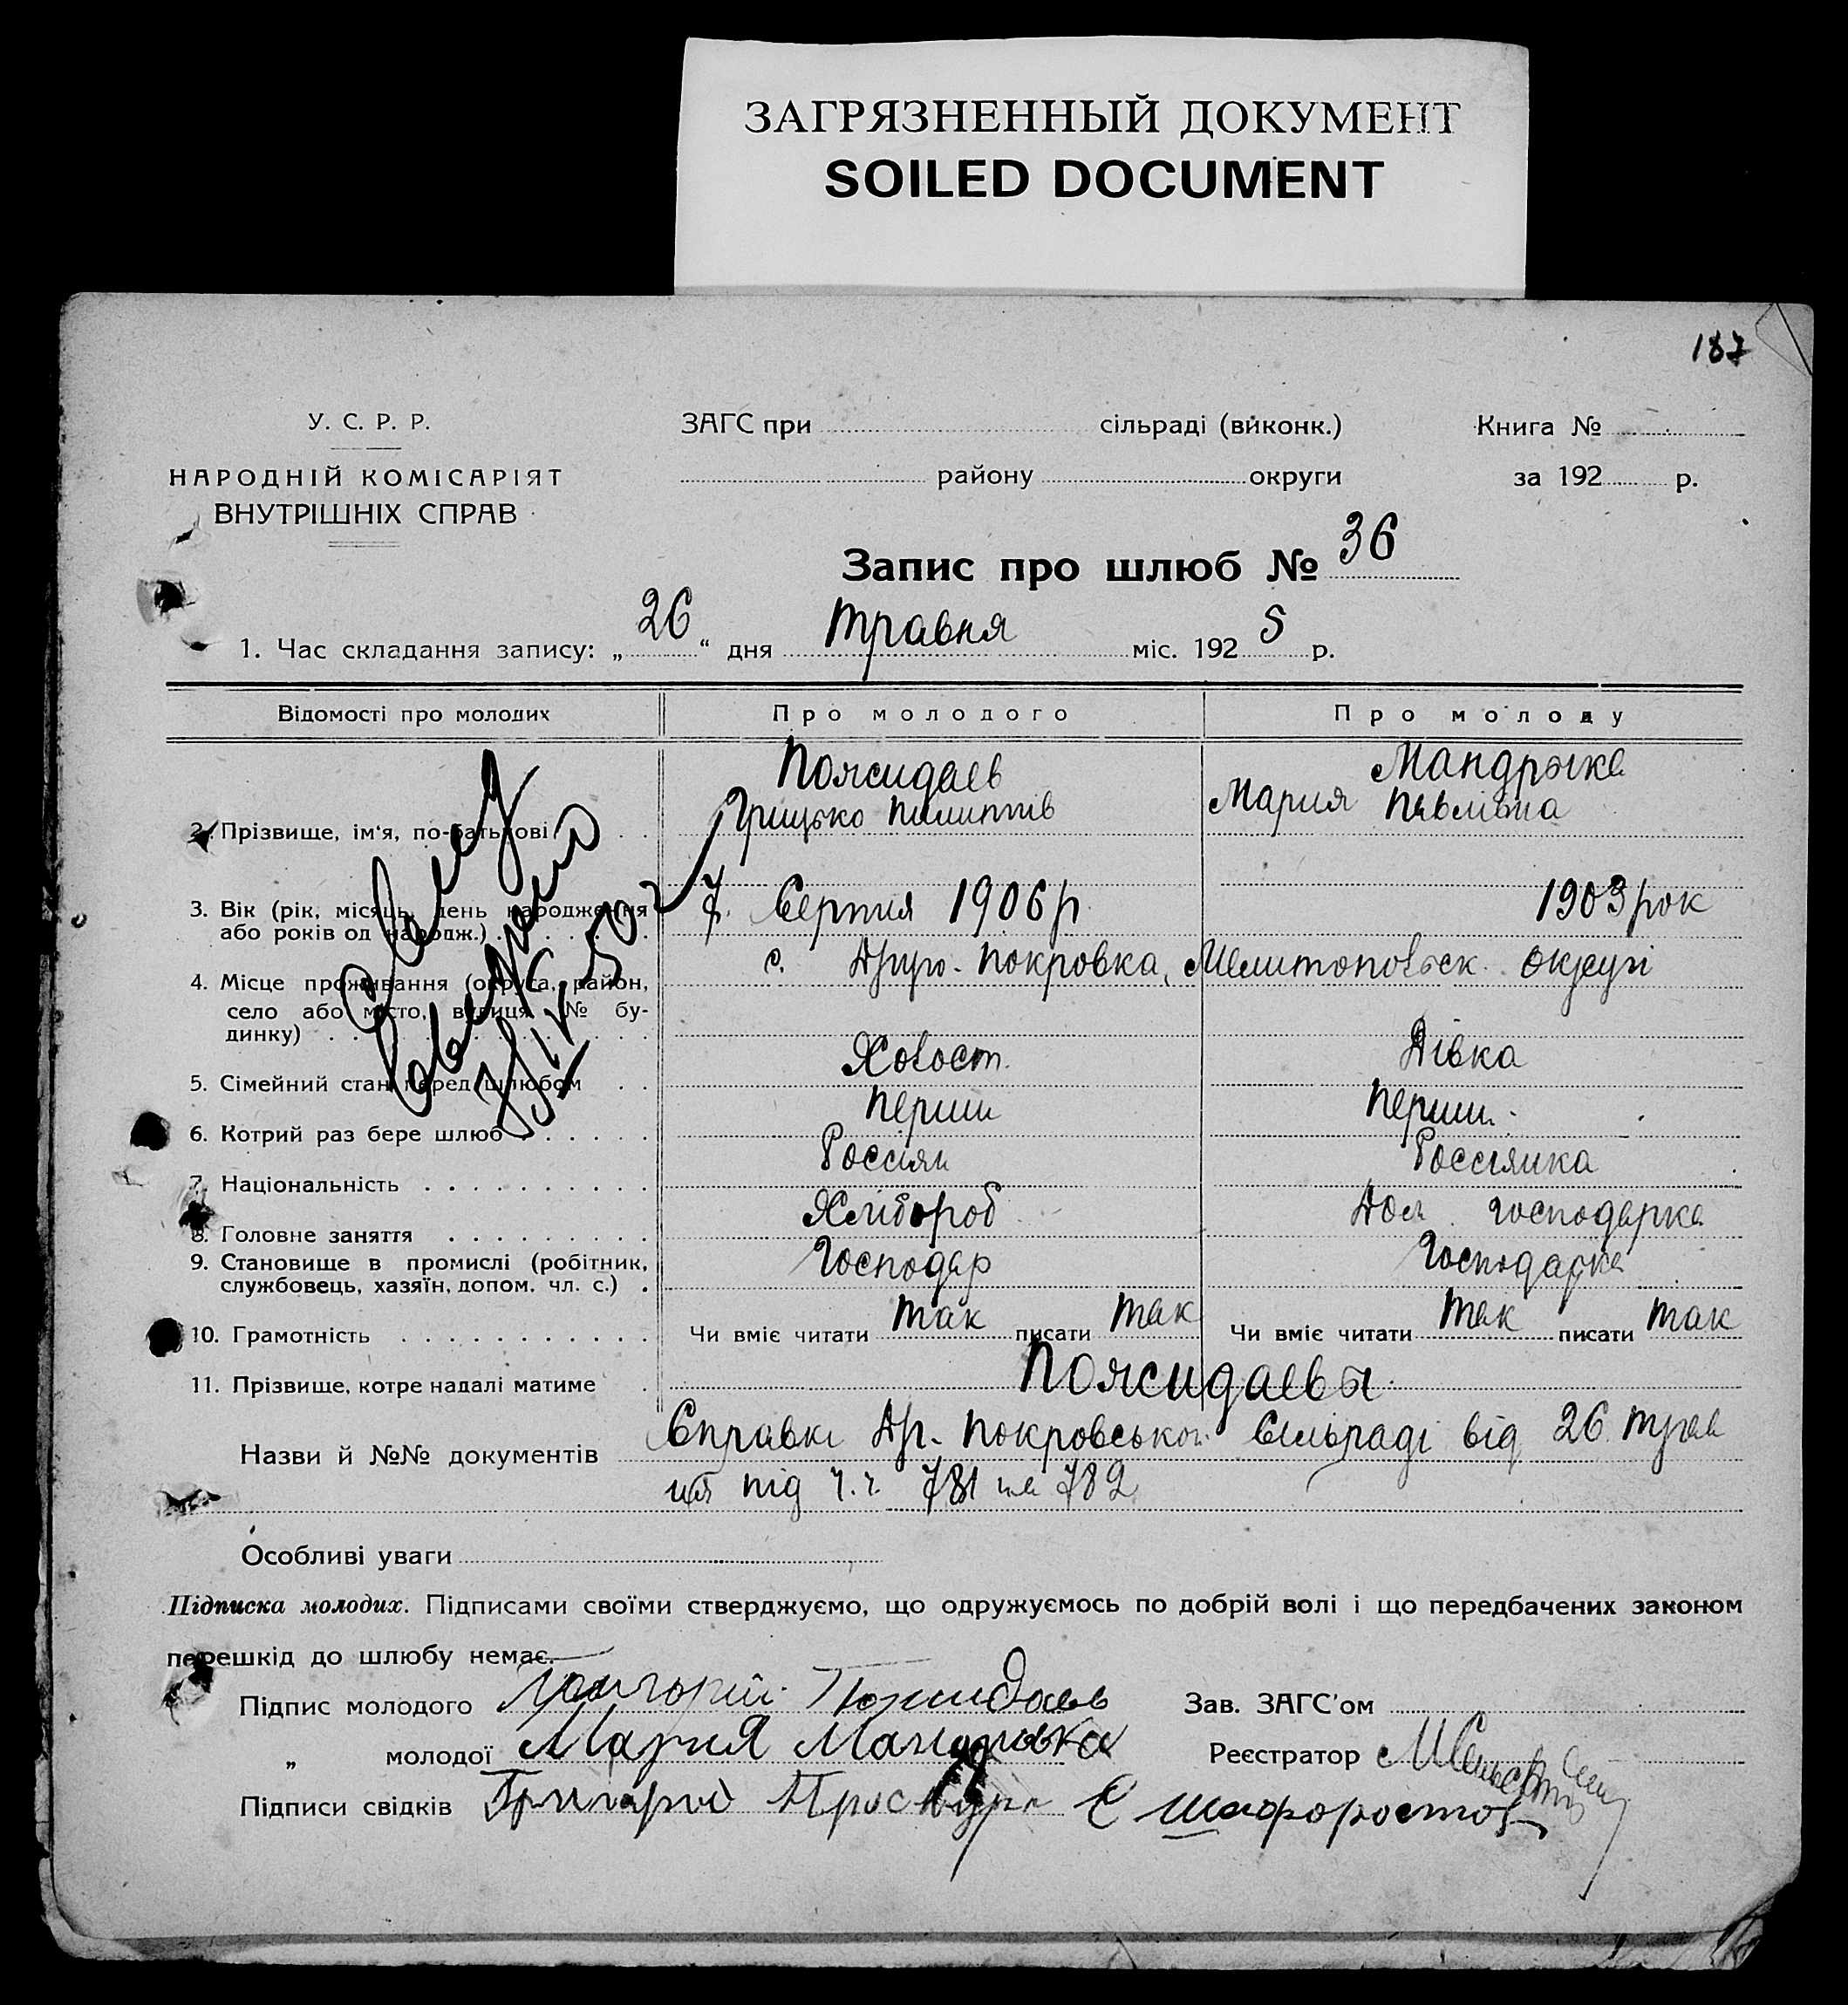 ЗАГРЯЗНЕННЫЙ ДОКУМЕНТ
SOILED DOCUMENT
187
У. С. Р. Р.
НАРОДНІЙ КОМІСАРІЯТ
ВНУТРІШНІХ СПРАВ
ЗАГС при сільраді (виконк.)
району округи
Книга №
за 192 р.
Запис про шлюб № 36
1. Час складання запису: „ 26 “ дня травня міс. 192 5 р.
Відомості про молодих Про молодого Про молоду
2. Прізвище, ім'я, по-батькові Пожидаєв Мандрыка
Грицько Пилипів Мария Павлівна
3. Вік (рік, місяць, день народження 7. Серпня 1906 р. 1903 рок
або років од народж.)
4. Місце проживання (округа, район, с. Друго-Покровка, Мелитопольск. округи
село або місто, вулиця, № бу-
динку)
5. Сімейний стан перед шлюбом Холост. Дівка
6. Котрий раз бере шлюб Перши Перши.
7. Національність Россіян Россіянка
8. Головне заняття Хлібороб Дом. господарка
9. Становище в промислі (робітник, Господар Господарка
службовець, хазяїн, допом. чл. с.)
10. Грамотність Чи вміє читати так писати так Чи вміє читати так писати так
11. Прізвище, котре надалі матиме Пожидаевы
Назви й №№ документів Справки Др. Покровськой Сильраді від 26 трав
ня під ч.ч. 781 та 782
Особливі уваги
Підписка молодих. Підписами своїми стверджуємо, що одружуємось по добрій волі і що передбачених законом
перешкід до шлюбу немає.
Підпис молодого Григорий Пожидаев Зав. ЗАГС'ом
„ молодої Мария Мандрыка Реєстратор
Підписи свідків Григорий Е Шафоростов